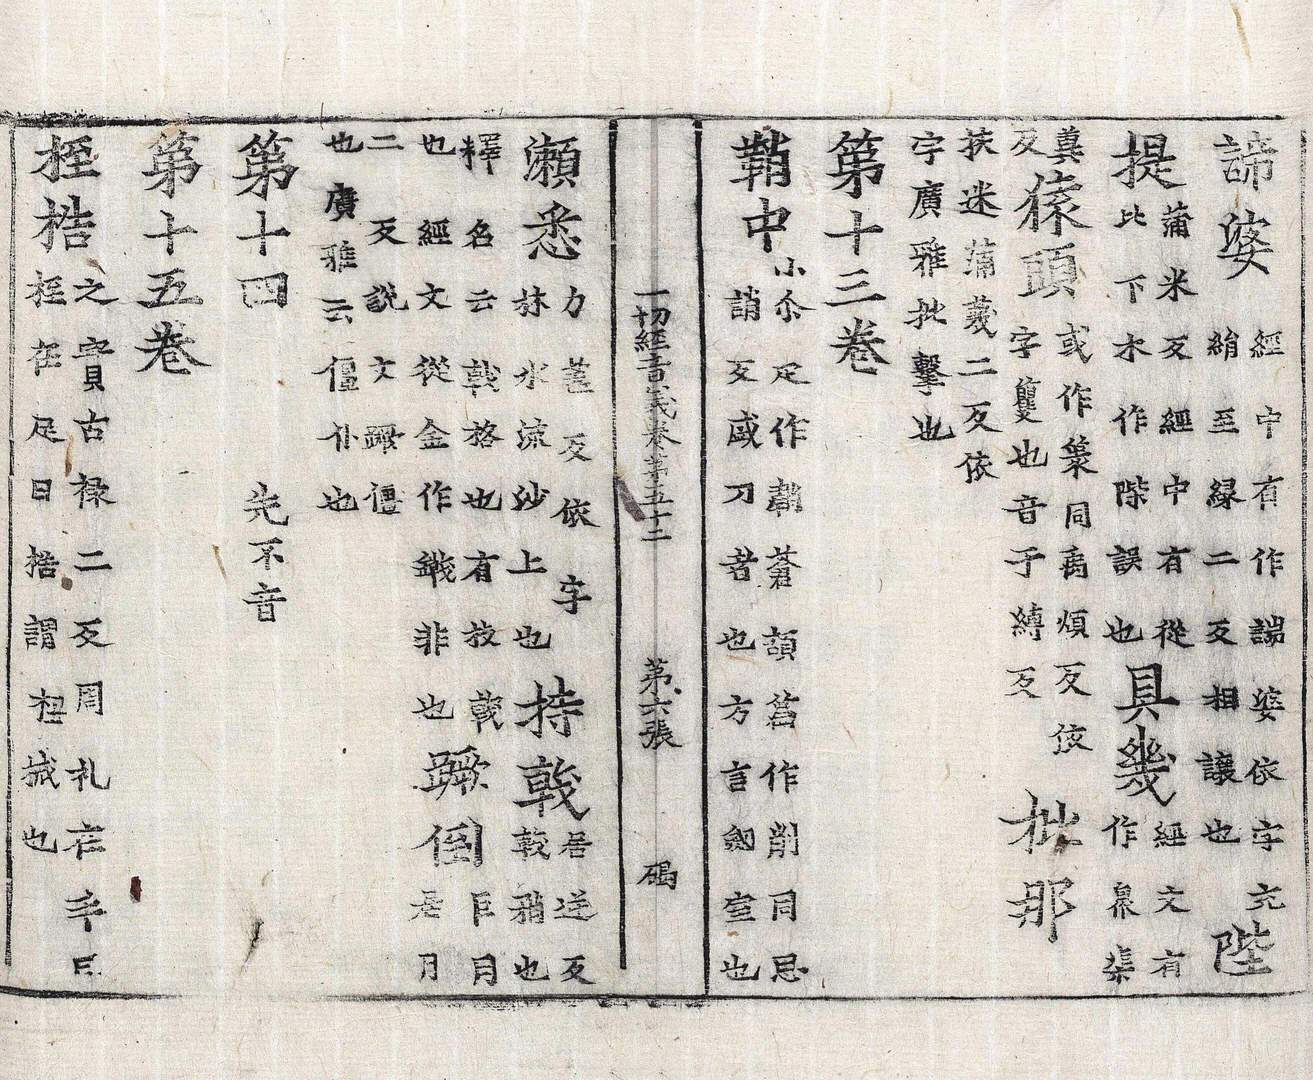 諦婆經中有作諯婆依字充絹至緣二反相讓也陛
提蒲米反經中有從比下木作陛誤也具幾經文有作臮渠
冀反猨頭或作篆同禹煩反依字玃也音于縛反枇那
扶迷蒲蔑二反依字廣雅批擊也
第十三卷
鞘中小尒疋作鞩蒼頡篇作削同思誚反盛刀者也方言劒室也
一切經音義卷第五十二 第六張 碣
瀨悉力葢反依字林水流沙上也持戟居逆反戟矟也
釋名云戟格也有放戟也經文從金作鐵非也蹶倒巨月居月
二反説文蹶僵也廣雅云僵仆也
第十四 先不音
第十五卷
桎梏之實古祿二反周礼在手曰桎在足曰梏謂杻械也